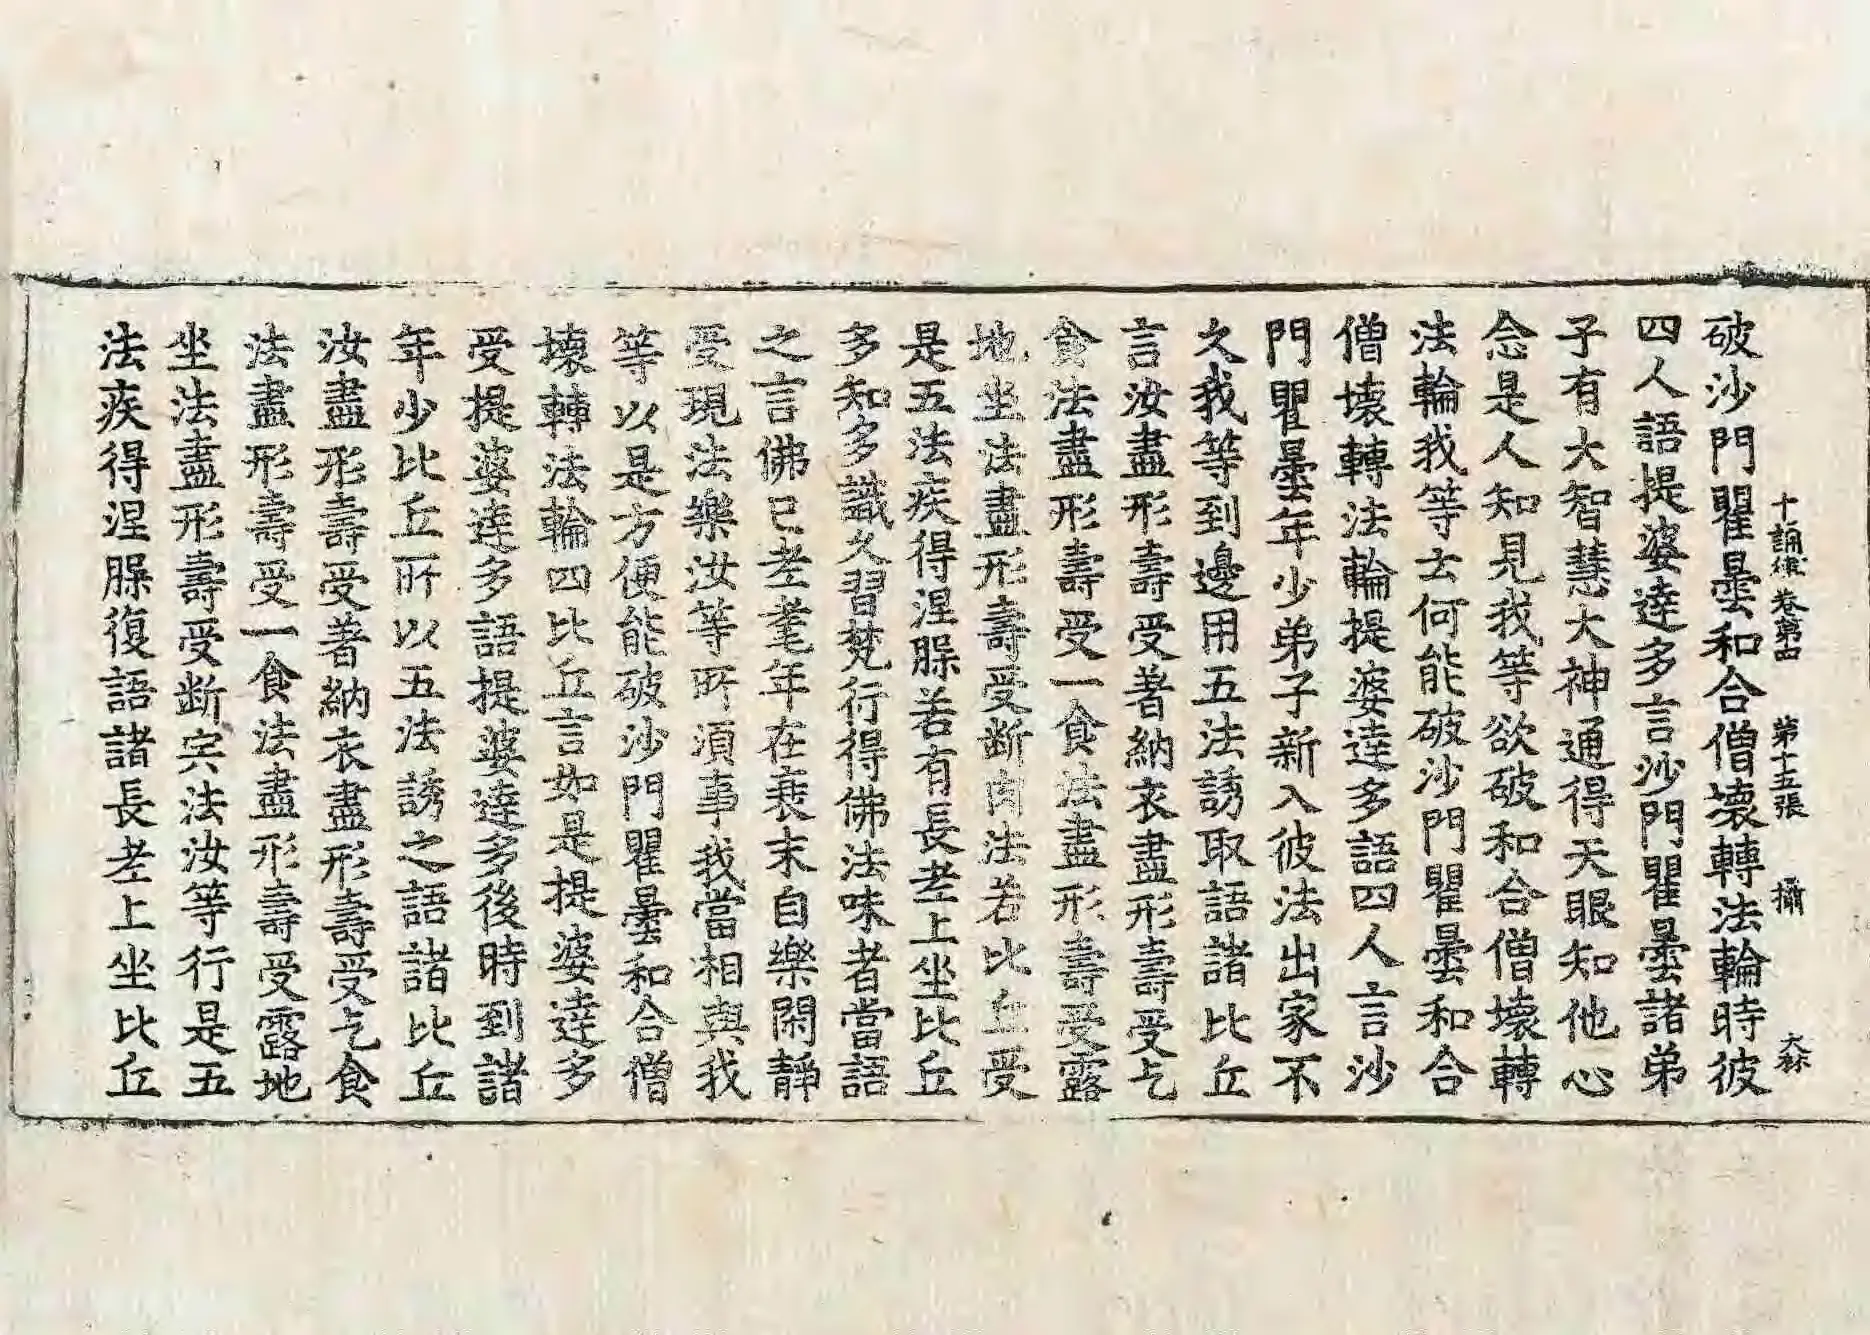 十誦律卷第四　第十五張　攝　大林
破沙門瞿曇和合僧壞轉法輪時彼
四人語提婆達多言沙門瞿曇諸弟
子有大智慧大神通得天眼知他心
念是人知見我等欲破和合僧壞轉
法輪我等云何能破沙門瞿曇和合
僧壞轉法輪提婆達多語四人言沙
門瞿曇年少弟子新入彼法出家不
久我等到邊用五法誘取語諸比丘
言汝盡形壽受著納衣盡形壽受乞
食法盡形壽受一食法盡形壽受露
地坐法盡形壽受断肉法若比丘受
是五法疾得涅槃若有長老上坐比丘
多知多識久習梵行得佛法味者當語
之言佛已老耄年在衰末自樂閑靜
受現法樂汝等所須事我當相與我
等以是方便能破沙門瞿曇和合僧
壞轉法輪四比丘言如是提婆達多
受提婆達多語提婆達多後時到諸
年少比丘所以五法誘之語諸比丘
汝盡形壽受著納衣盡形壽受乞食
法盡形壽受一食法盡形壽受露地
坐法盡形壽受断宍法汝等行是五
法疾得涅槃復語諸長老上坐比丘